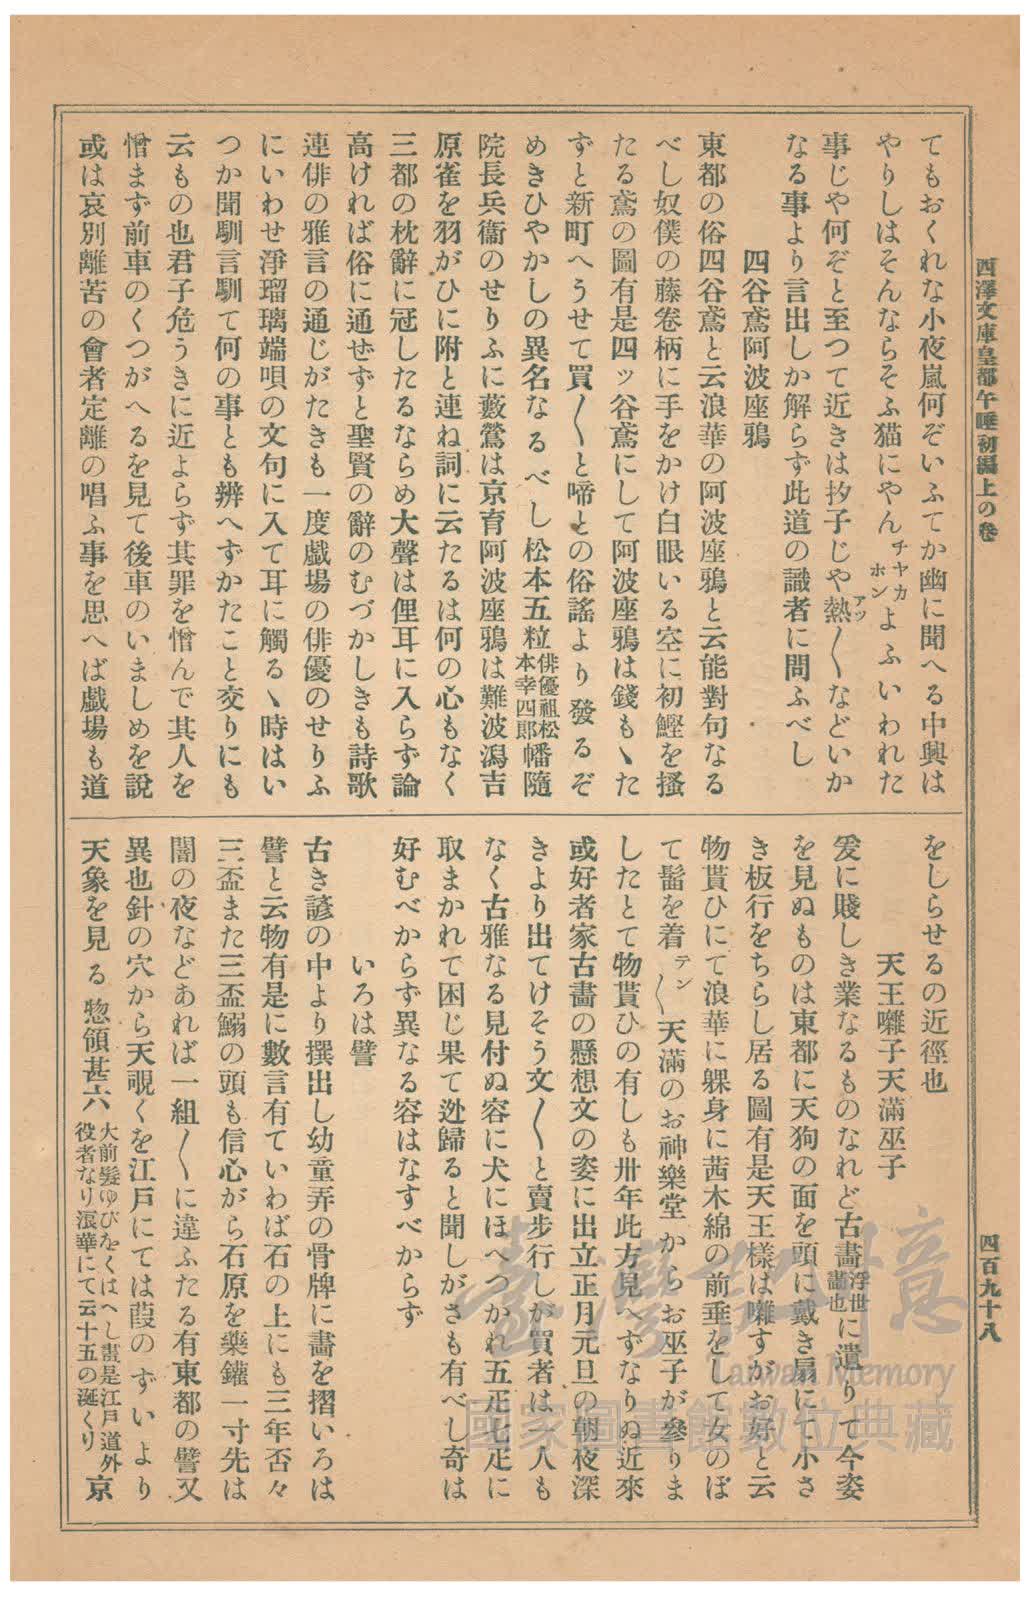 西澤文庫皇都午睡初編上の卷
四百九十八
てもおくれな小夜嵐何ぞいふてか幽に聞へる中興は
やりしはそんならそふ猫にやんチヤカホンよふいわれた
事じや何ぞと至つて近きは抄子じや熱アツ〱などいか
なる事より言出しか解らず此道の識者に問ふべし
四谷鳶阿波座鴉
東都の俗四谷鳶と云浪華の阿波座鴉と云能對句なる
べし奴僕の藤卷柄に手をかけ白眼いる空に初鰹を搔
たる鳶の圖有是四ッ谷鳶にして阿波座鴉は錢もヽた
ずと新町へうせて買〱と啼との俗謠より發るぞ
めきひやかしの異名なるべし松本五粒俳優祖松本幸四郎幡隨
院長兵衞のせりふに藪鶯は京育阿波座鴉は難波潟吉
原雀を羽がひに附と連ね詞に云たるは何の心もなく
三都の枕辭に冠したるならめ大聲は俚耳に入らず論
高ければ俗に通せずと聖賢の辭のむづかしきも詩歌
連俳の雅言の通じがたきも一度戯場の俳優のせりふ
にいわせ淨瑠璃端唄の文句に入て耳に觸るヽ時はい
つか聞馴言馴て何の事とも辨へずかたこと交りにも
云もの也君子危うきに近よらず其罪を憎んで其人を
憎まず前車のくつがへるを見て後車のいましめを說
或は哀別離苦の會者定離の唱ふ事を思へば戯場も道
をしらせるの近徑也
天王囃子天滿巫子
爰に賤しき業なるものなれど古畵浮世畵也に遺りて今姿
を見ぬものは東都に天狗の面を頭に戴き扇にて小さ
き板行をちらし居る圖有是天王樣は囃すがお好と云
物貰ひにて浪華に躶身に茜木綿の前垂をして女のぼ
て鬘を着テン〱天滿のお神樂堂からお巫子が參りま
したとて物貰ひの有しも卅年此方見へずなりぬ近來
或好者家古畵の懸想文の姿に出立正月元旦の朝夜深
きより出てけそう文〱と賣步行しが買者は一人も
なく古雅なる見付ぬ容に犬にほへつかれ五疋七疋に
取まかれて困じ果て迯歸ると聞しがさも有べし奇は
好むべからず異なる容はなすべからず
いろは譬
古き諺の中より撰出し幼童弄の骨牌に畫を摺いろは
譬と云物有是に數言有ていわば石の上にも三年否々
三盃また三盃鰯の頭も信心がら石原を藥鑵一寸先は
闇の夜などあれば一組〱に違ふたる有東都の譬又
異也針の穴から天覗くを江戸にては葭のずいより
天象を見る惣領甚六大前髮ゆびをくはへし畫是江戸道外役者なり浪華にて云十五の涎くり京
臺灣記憶
Taiwan Memory
國家圖書館數位典藏